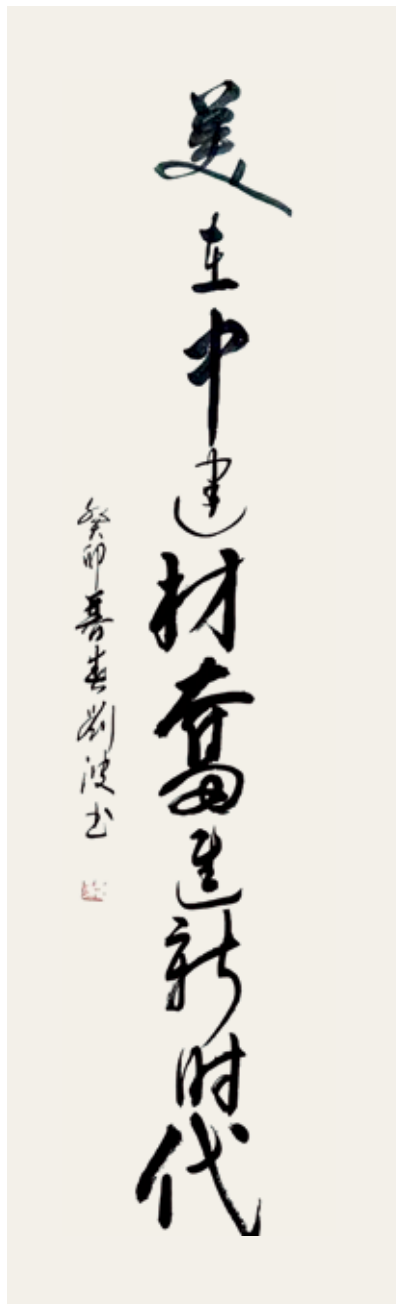 美在中建材奮進新时代
癸卯暮春劉波书